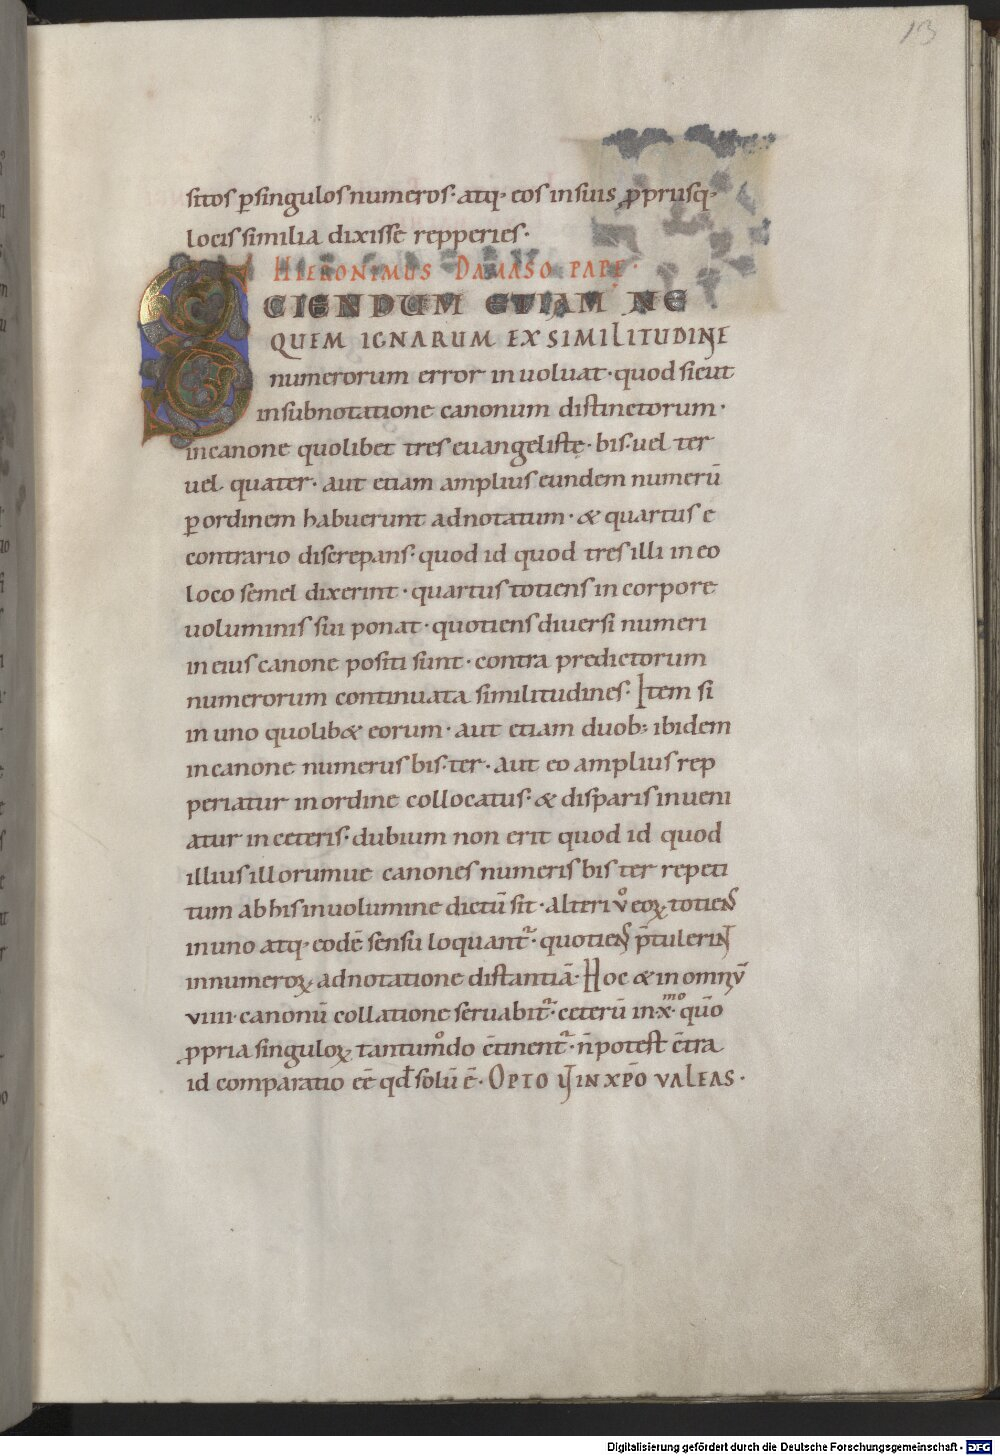 13
sitos p̱ singulos numeros · atq · eos in suis ꝓpriisq ·
locis similia dixisse repperies ·
HIERONIMUS DAMASO PAPE ·
SCIENDUM ETIAM NE
QUEM IGNARUM EX SIMILITUDINE
numerorum error inuoluat · quod sicut
in subnotatione canonum distinctorum ·
in canone quolibet tres euangelistę · bis · uel ter
uel quater · aut etiam amplius eundem numerū
ꝑ ordinem habuerunt adnotatum · & quartus e
contrario discrepans · quod id quod tres illi in eo
loco semel dixerint · quartus totiens in corpore
uoluminis sui ponat · quotiens diuersi numeri
in eius canone positi sunt · contra predictorum
numerorum continuata similitudines · Item si
in uno quolib& eorum · aut etiam duob; ibidem
in canone numerus bis · ter · aut eo amplius rep
periatur in ordine collocatus · & disparis inueni
atur in ceteris · dubium non erit quod id quod
illius illorumue canones numeris bis ter repeti
tum ab his in uolumine dictū sit · alteri ůeoꝝ totiens
in uno atq · eodē sensu loquant᷑ · quotiens p̄tulerint
in numeroꝝ adnotatione distantiā · Hoc & in omniū
viiii · canonū collatione seruabit᷑ · ceterū in · x · mo quō
ꝓpria singuloꝝ tantum̊do c̄tinent᷑ · n̄ potest c̄tra
id comparatio eē qd̄ solū ē · OPTO UT IN XP̄O VALEAS ·
Digitalisierung gefördert durch die Deutsche Forschungsgemeinschaft - DFG